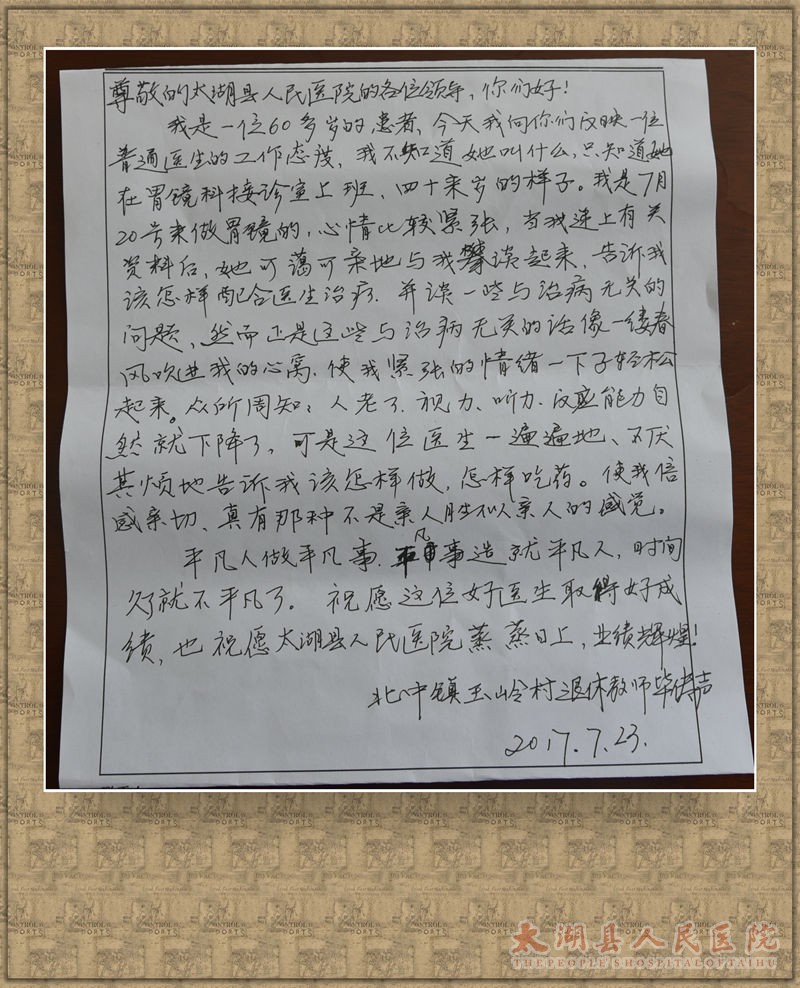 尊敬的太湖县人民医院的各位领导，你们好！
我是一位60多岁的患者，今天我向你们反映一位
普通医生的工作态度，我不知道她叫什么，只知道她
在胃镜科接诊室上班，四十来岁的样子。我是7月
20号来做胃镜的，心情比较紧张，当我递上有关
资料后，她可蔼可亲地与我攀谈起来，告诉我
该怎样配合医生治疗，并谈一些与治病无关的
问题，然而正是这些与治病无关的话像一缕春
风吹进我的心窝，使我紧张的情绪一下子轻松
起来。众所周知：人老了，视力、听力、反应能力自
然就下降了，可是这位医生一遍遍地、不厌
其烦地告诉我该怎样做，怎样吃药。使我倍
感亲切、真有那种不是亲人胜似亲人的感觉。
平凡人做平凡事，平凡事造就平凡人，时间
久了就不平凡了。祝愿这位好医生取得好成
绩，也祝愿太湖县人民医院蒸蒸日上，业绩辉煌！
北中镇玉岭村退休教师毕传声
2017.7.23.
太湖县人民医院
THE PEOPLE'S HOSPITAL OF TAIHU